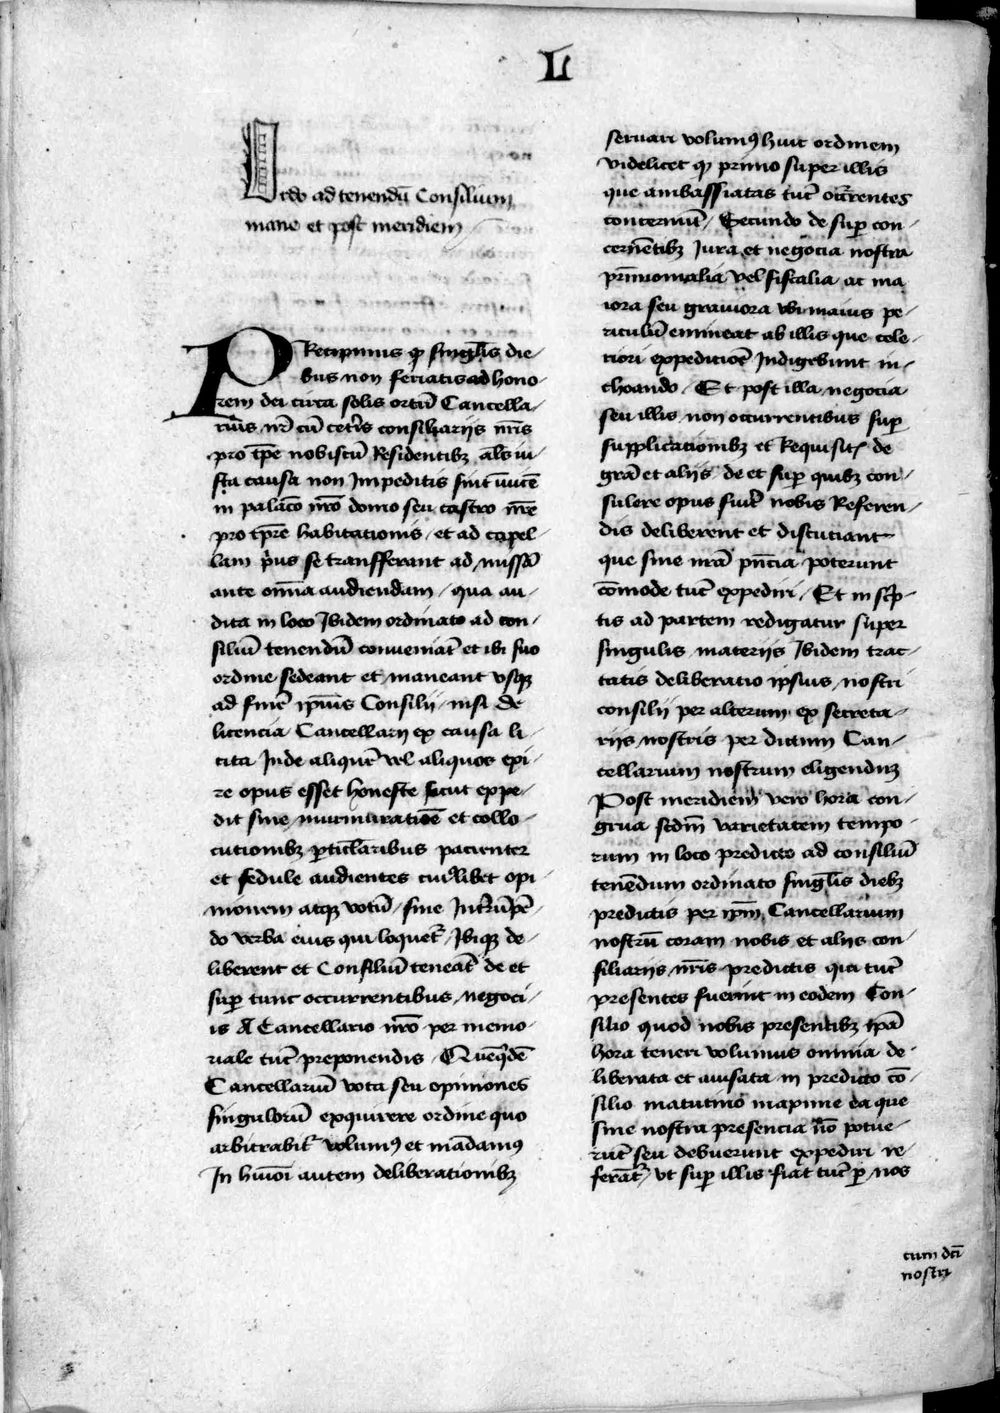 L
Ordo ad tenendū Consilium
mane et post meridiem
PRecipimus qͥ singlīs die-
bus non feriatis ad hono-
rem dei circa solis ortū Cancella-
rius nr̄ cū cetīs consiliariis nr̄is
pro tp̄e nobiscū Residentibꝫ als̄ iu-
sta causa non Impeditis sint
in palac̄o nr̄o domo seu castro nr̄e
pro tp̄re habitationis / et ad capel-
lam pͥus se transfferant ad missā
ante om̄ia audiendam / qua au-
dita in loco Ibidem ordinato ad con-
siliū tenendū conueniāt et ibi suo
ordine sedeant et maneant vsqꝫ
ad finē ip̄ius Consilii / nisi de
licencia Cancellarij ex causa li-
cita Inde aliquē vel aliquos exi-
re opus esset honeste sicut expe-
dit sine murmuratiōe et collo-
cutionibꝫ ꝑticl̄aribus pacienter
et sedule audientes cuiꝰlibet opi-
nionem atqꝫ votū / sine Intrūpē-
do verba eius qui loquet̄ / Ibiqꝫ de-
liberent et Consiliū teneāt de et
suꝑ tunc occurrentibus negoci-
is A Cancellario nr̄o per memo-
riale tūc preponendis / Quēq̄dē
Cancellariū vota seu opiniones
singulorū exquirere ordine quo
arbitrabit̄ volumꝰ et mādamꝰ
In hmōi autem deliberationibꝫ
seruari volumꝰ hunc ordinem
videlicet qͥ primo super illis
que ambassiatas tūc occ̄rentes
concernūt / Secundo de suꝑ con-
cernētibꝫ Iura et negocia nostra
pr̄imonialia vel fiscalia ac ma
iora seu grauiora vbi maius pe-
riculū emineat ab illis que cele-
riori expeditiōe Indigebunt in-
choando / Et post illa negocia
seu illis non occurrentibus suꝑ
supplicationibꝫ et Requisit̄ de
grā et aliis de et suꝑ quibꝫ con-
sulere opus fuit̄ nobis Referen-
dis deliberent et discutiant
que sine nr̄a pn̄cia poterunt
cōmode tūc expediri / Et in scͥp-
tis ad partem redigatur super
singulis materiis Ibidem trac-
tatis deliberatio ipsius nostri
consilii per alterum ex secreta-
riis nostris per dictum Can-
cellarium nostrum eligendū
Post meridiem vero hora con-
grua scdm̄ varietatem tempo-
rum in loco predicto ad consiliū
tenēdum ordinato singlīs diebꝫ
predictis per ip̄m Cancellarium
nostrū coram nobis et aliis con-
siliariis nr̄is predictis qui tūc
presentes fuerint in eodem Con-
silio quod nobis presentibꝫ
hora teneri volumus omnia de-
liberata et auisata in predicto cō-
silio matutino maxime ea que
sine nostra presencia nō potue-
rūt seu debuerunt expediri re-
ferāt̄ / vt suꝑ illis fiat tūc ꝑ nos
cum dc̄i
nostri